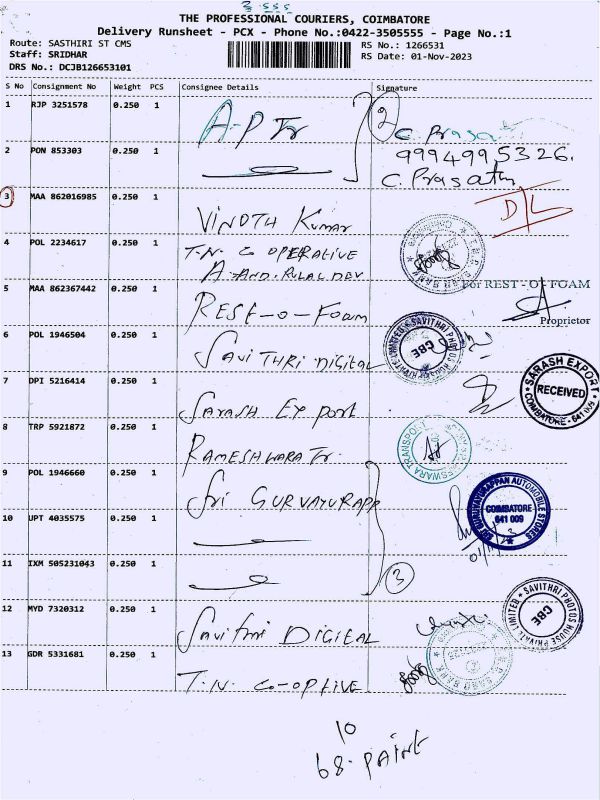 THE PROFESSIONAL COURIERS, COIMBATORE
Delivery Runsheet - PCX - Phone No.:0422-3505555 - Page No.:1
Route: SASTHIRI ST CMS
RS No.: 1266531
Staff: SRIDHAR
RS Date: 01-Nov-2023
DRS No.: DCJB126653101
S No Consignment No Weight PCS Consignee Details Signature
1 RJP 3251578 0.250 1 A.P Tr 2 C. Prasa
2 PON 853303 0.250 1 9994995326.
C. Prasath
3 MAA 862016985 0.250 1 Vinoth Kumar D/L
4 POL 2234617 0.250 1 T.N. Co OPERATIVE
A. AND. RULAL DEV
5 MAA 862367442 0.250 1 REST-O-FOAM For REST - O - FOAM
Proprietor
6 POL 1946504 0.250 1 SAVITHRI DIGITAL SAVITHRI PHOTOS HOUSE PRIVATE LIMITED CBE
7 DPI 5216414 0.250 1 Sarash Export SARASH EXPORT RECEIVED COIMBATORE - 641 009
8 TRP 5921872 0.250 1 RAMESHWARA Tr.
9 POL 1946660 0.250 1 Sri GURVAYURAPP SRI GURUVAYURAPPAN AUTOMOBILE STORES COIMBATORE 641 009
10 UPT 4035575 0.250 1
11 IXM 505231043 0.250 1 3
12 MYD 7320312 0.250 1 Savithri DIGITAL SAVITHRI PHOTOS HOUSE PRIVATE LIMITED CBE
13 GDR 5331681 0.250 1 T.N. CO-OPTIVE
10
68. PAINT